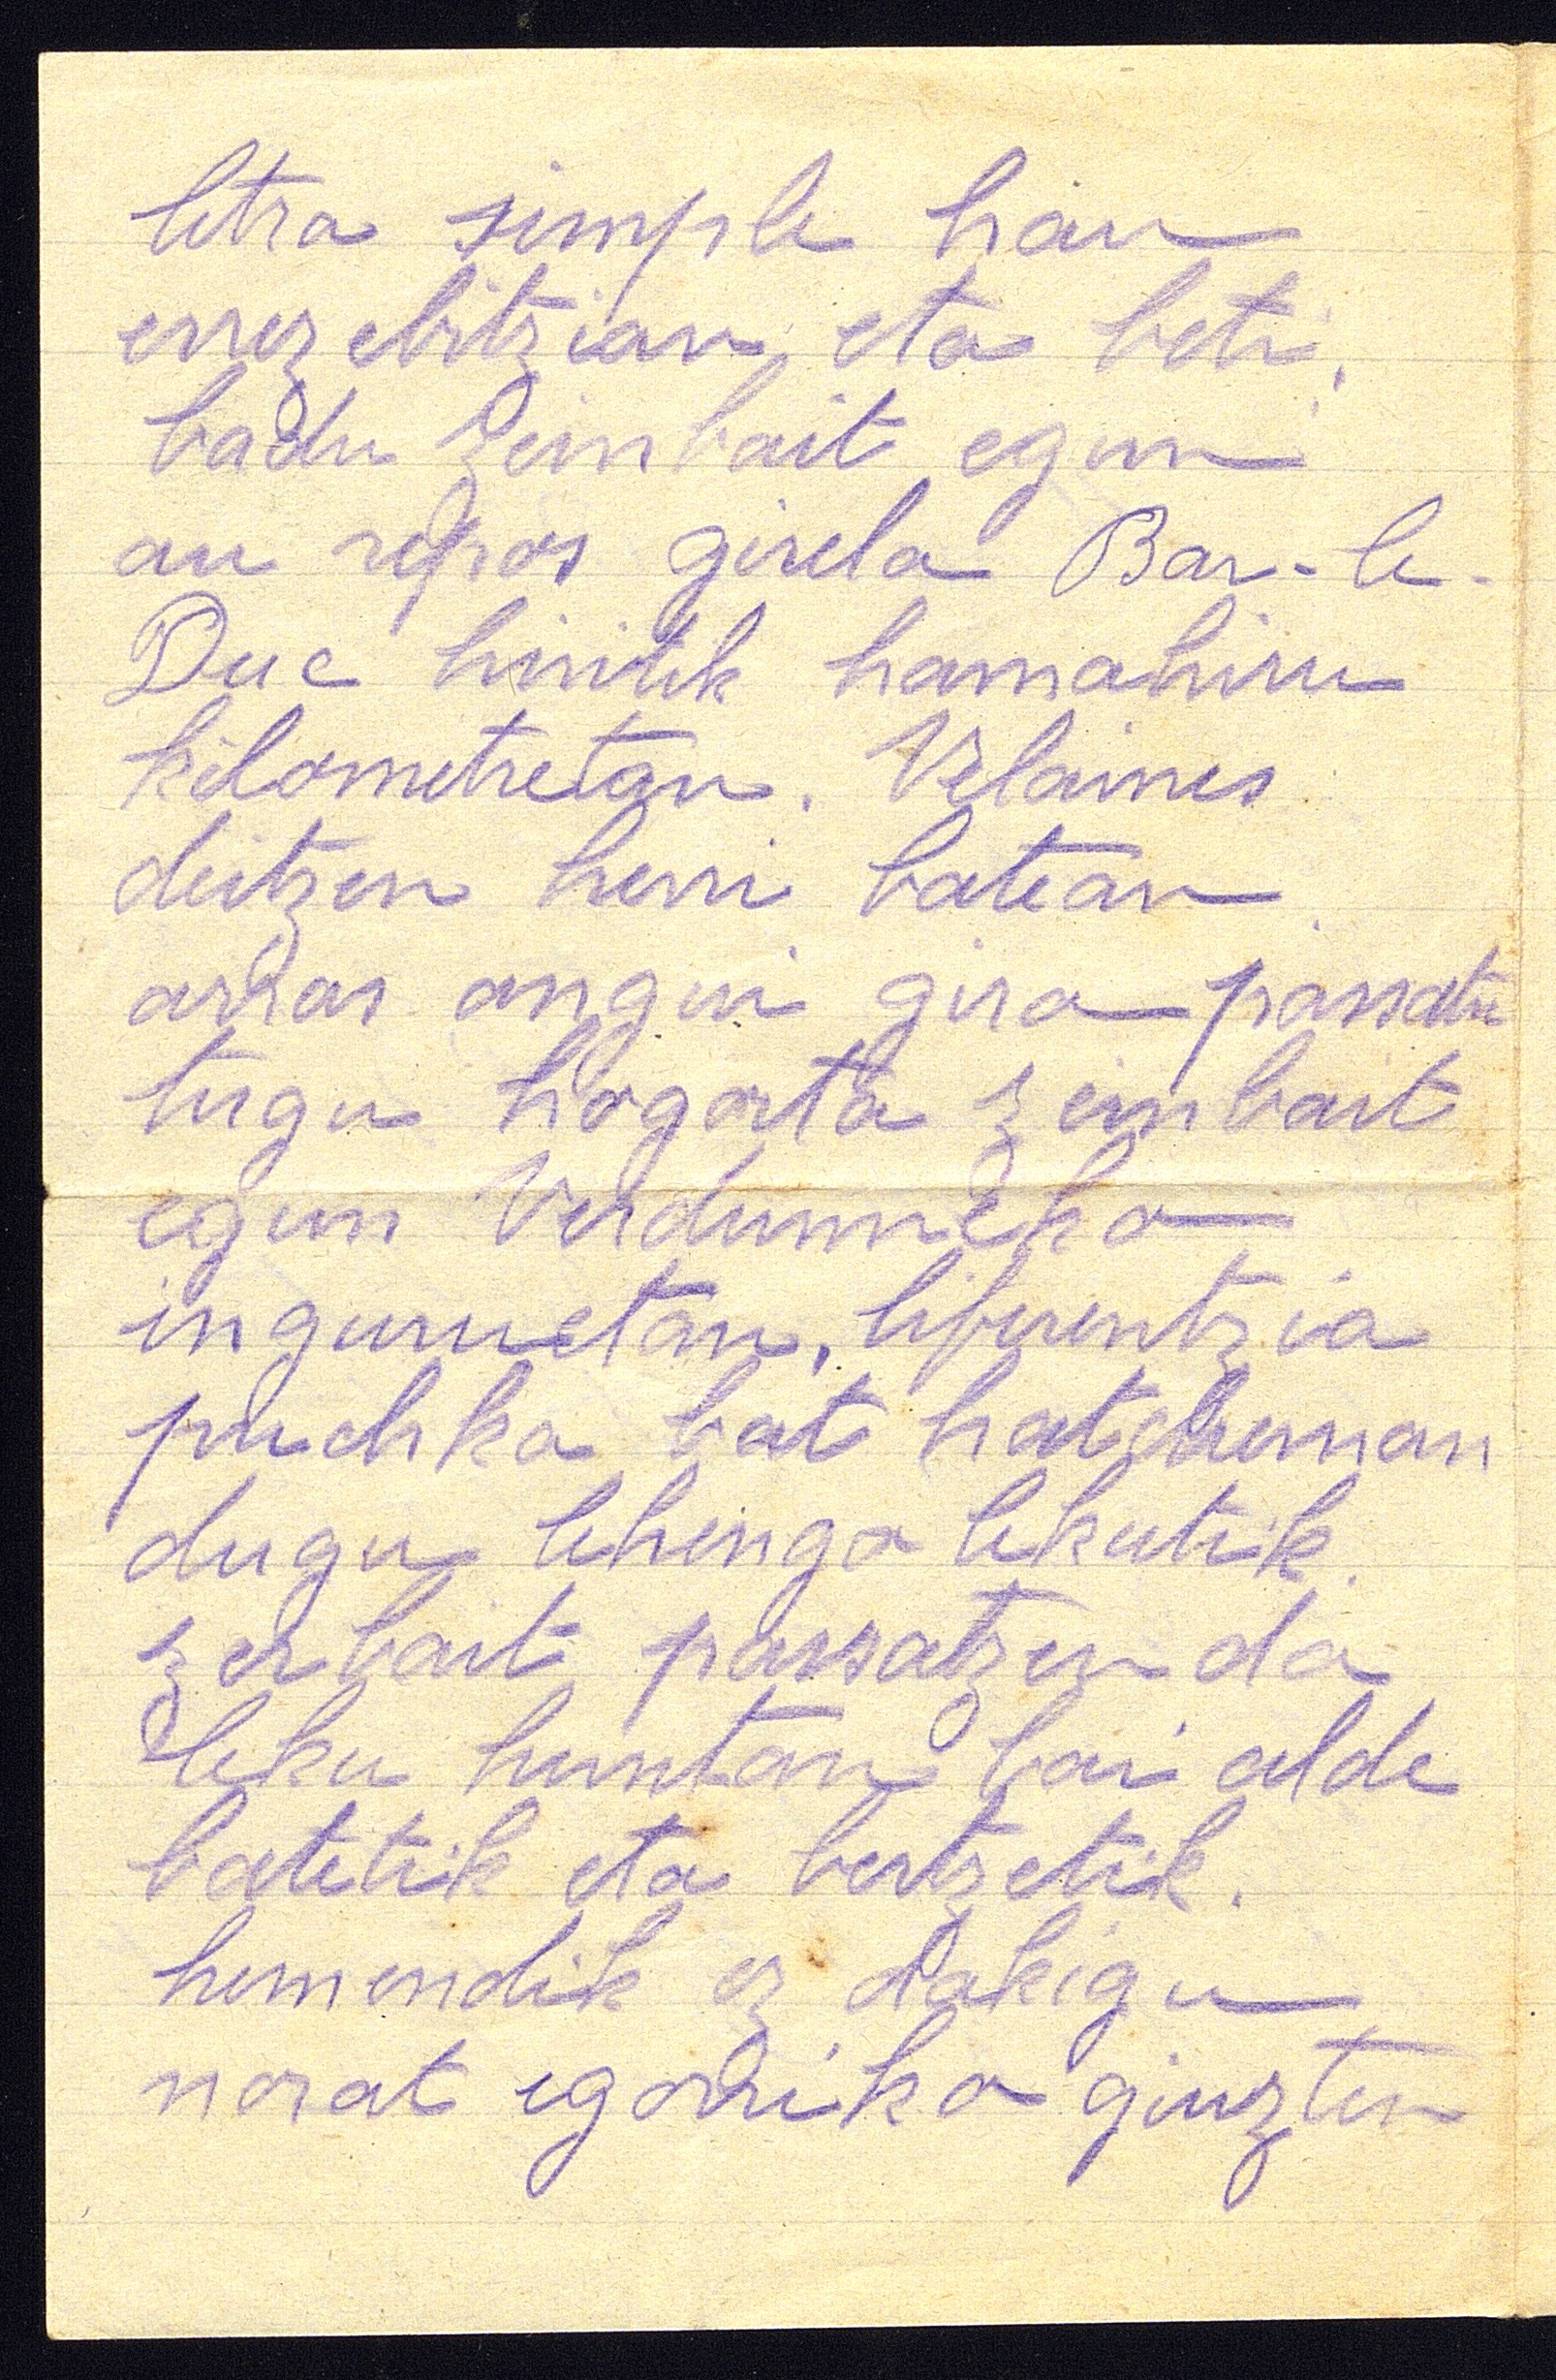 letra simple hau
errezebitzian, eta beti.
badu zeinbait egun
au repos girela Bar-le-
Duc hiritik hamahiru
kilometretan. Velaines
deitzen herri batean.
arras ongui gira passatu
tugu hogoita zeinbait
egun Verduneko
inguruetan, liferentzia
puchka bat hatcheman
dugu lehengo lekutik.
zerbait passatzen da
leku huntan bai alde
batetik eta bertzetik.
hemendik ez dakigu
norat egorriko giuzten